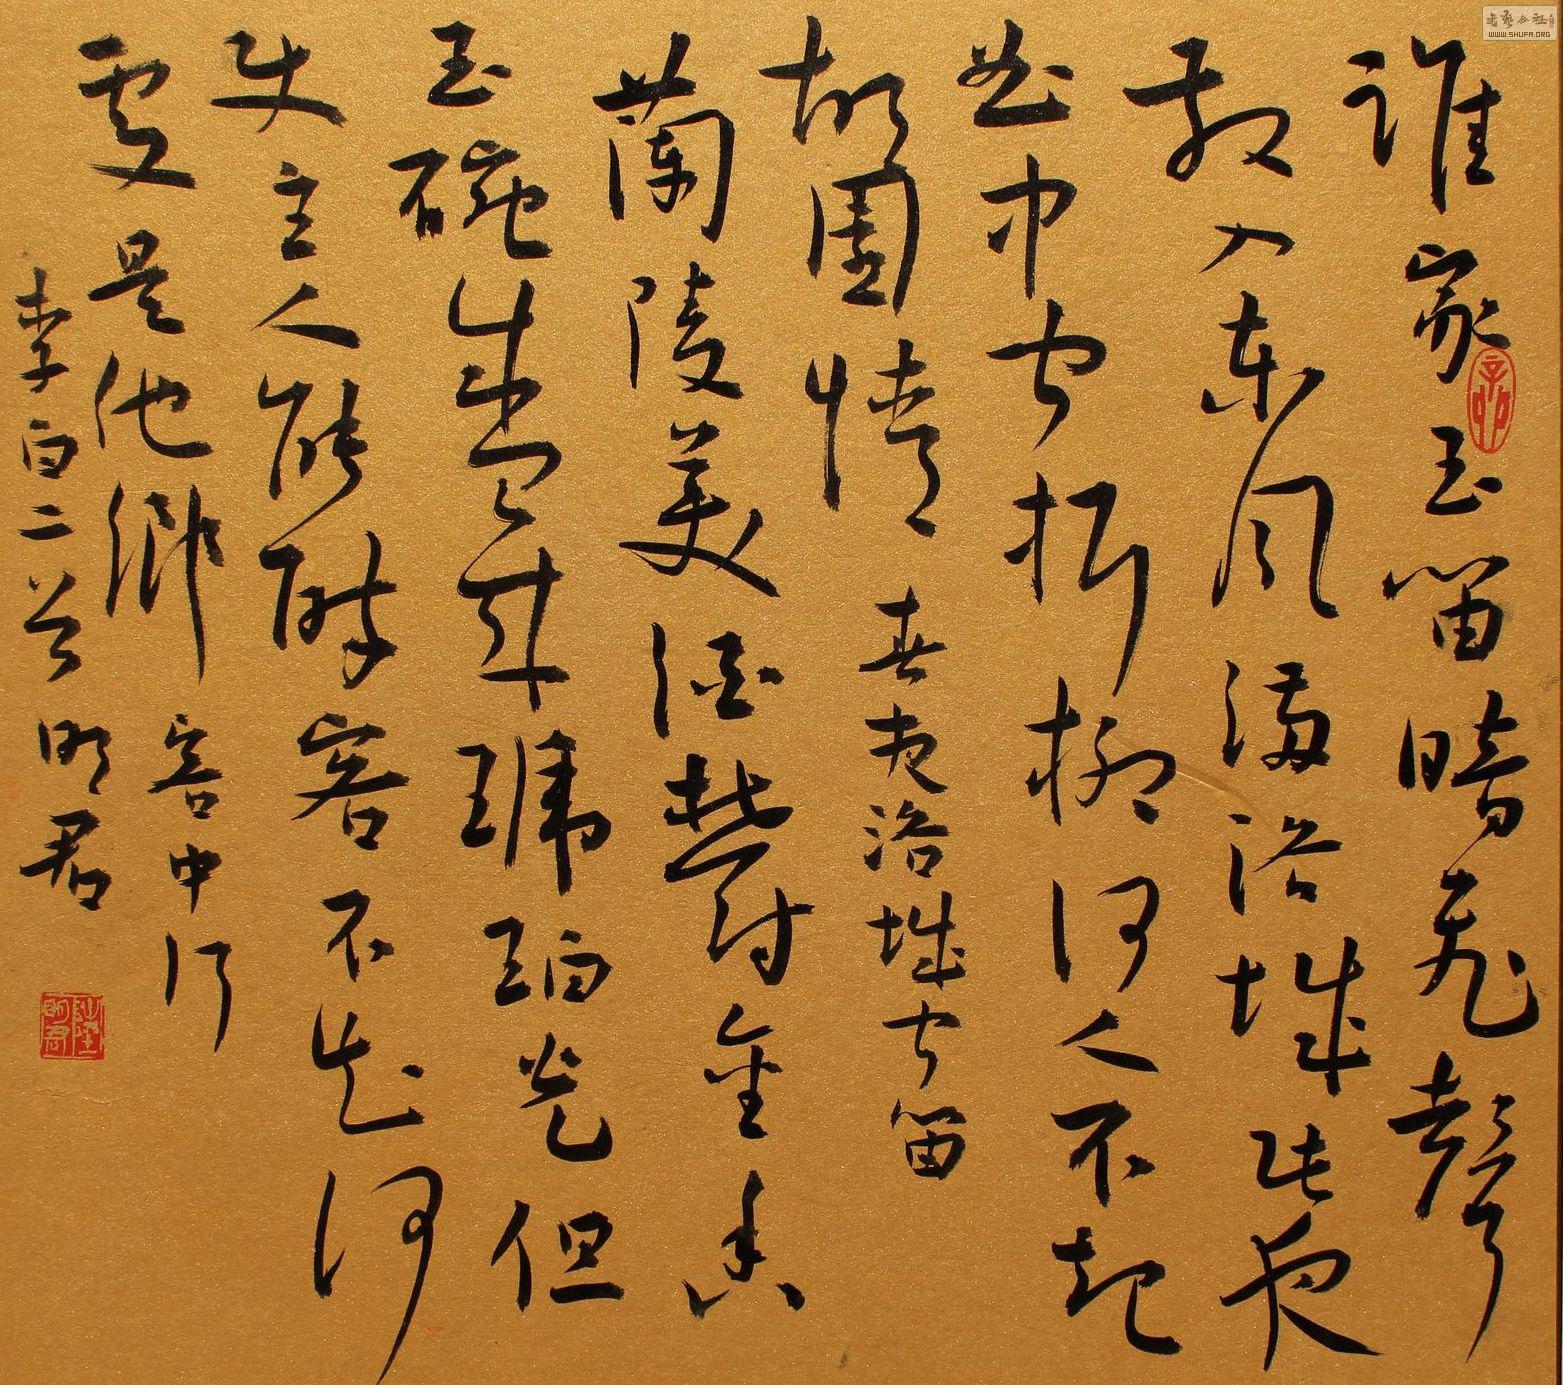 誰家玉笛暗飛聲
散入東風滿洛城此夜
曲中聞折柳何人不起
故園情 春夜洛城聞笛
蘭陵美酒鬱金香
玉碗盛來琥珀光但
使主人能醉客不知何
處是他鄉 客中行
李白二首 明君
陸明君
书艺公社
WWW.SHUFA.ORG